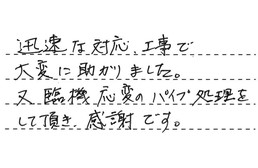 迅速な対応、工事で
大変に助かりました。
又臨機応変のパイプ処理を
して頂き、感謝です。